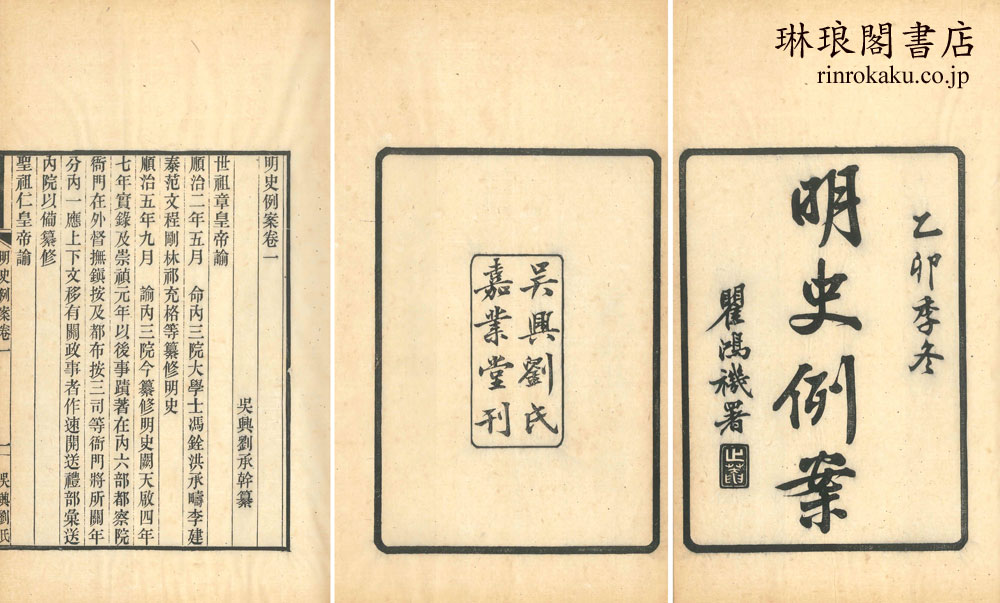 琳琅閣書店
rinrokaku.co.jp
乙卯季冬
明史例案
瞿鴻禨署
吳興劉氏
嘉業堂刊
明史例案卷一
吳興劉承幹纂
世祖章皇帝諭
順治二年五月　命內三院大學士馮銓洪承疇李建
泰范文程剛林祁充格等纂修明史
順治五年九月　諭內三院今纂修明史闕天啟四年
七年實錄及崇禎元年以後事蹟著在內六部都察院
衙門在外督撫鎮按及都布按三司等衙門將所闕年
分內一應上下文移有關政事者作速開送禮部彙送
內院以備纂修
聖祖仁皇帝諭
明史例案卷一
一
吳興劉氏